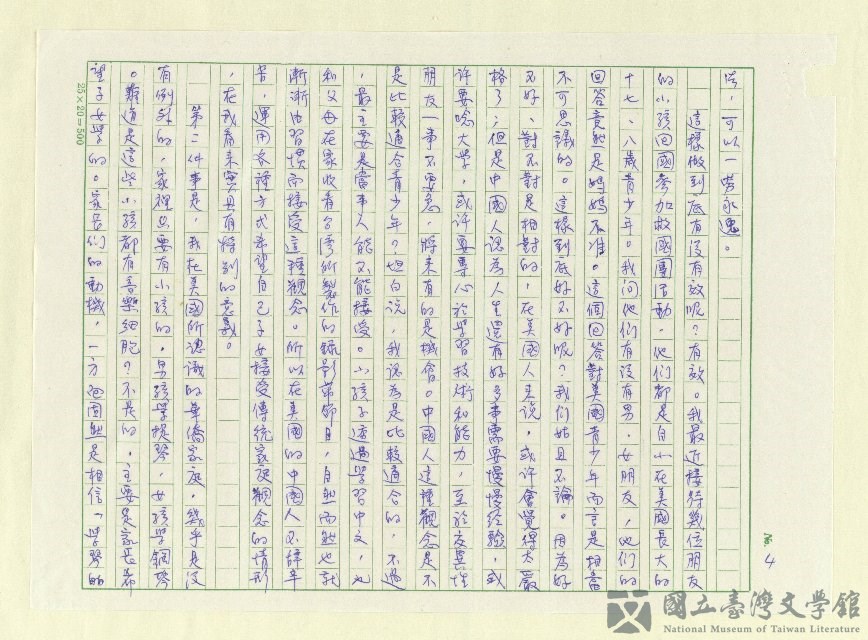 法，可以一勞永逸。
這樣做到底有沒有效呢？有效。我最近接待幾位朋友
的小孩回國參加救國團活動，他們都是自小在美國長大的
十七、八歲青少年。我問他們有沒有男、女朋友，他們的
回答竟然是媽媽不准。這個回答對美國青少年而言是相當
不可思議的。這樣到底好不好呢？我們姑且不論。因為好
不好、對不對是相對的，在美國人來說，或許會覺得太嚴
格了；但是中國人認為人生還有好多事需要慢慢經驗，或
許要唸大學，或許要專心於學習技術和能力，至於交異性
朋友一事不要急，將來有的是機會。中國人這種觀念是不
是比較適合青少年？坦白說，我認為是比較適合的，不過
，最主要是當事人能不能接受。小孩子透過學習中文，也
和父母在家收看台灣所製作的錄影帶節目，自然而然也就
漸漸地習慣而接受這種觀念。所以在美國的中國人不辭辛
苦，運用各種方式希望自己子女接受傳統家庭觀念的情形
，在我看來實具有特別的意義。
第二件事是，我在美國所認識的華僑家庭，幾乎是沒
有例外的，家裡只要有小孩的，男孩學提琴，女孩學鋼琴
。難道是這些小孩都有音樂細胞？不是的，主要是家長希
望子女學的。家長們的動機，一方面固然是相信「學琴的
25×20=500
4
國立臺灣文學館
National Museum of Taiwan Literature